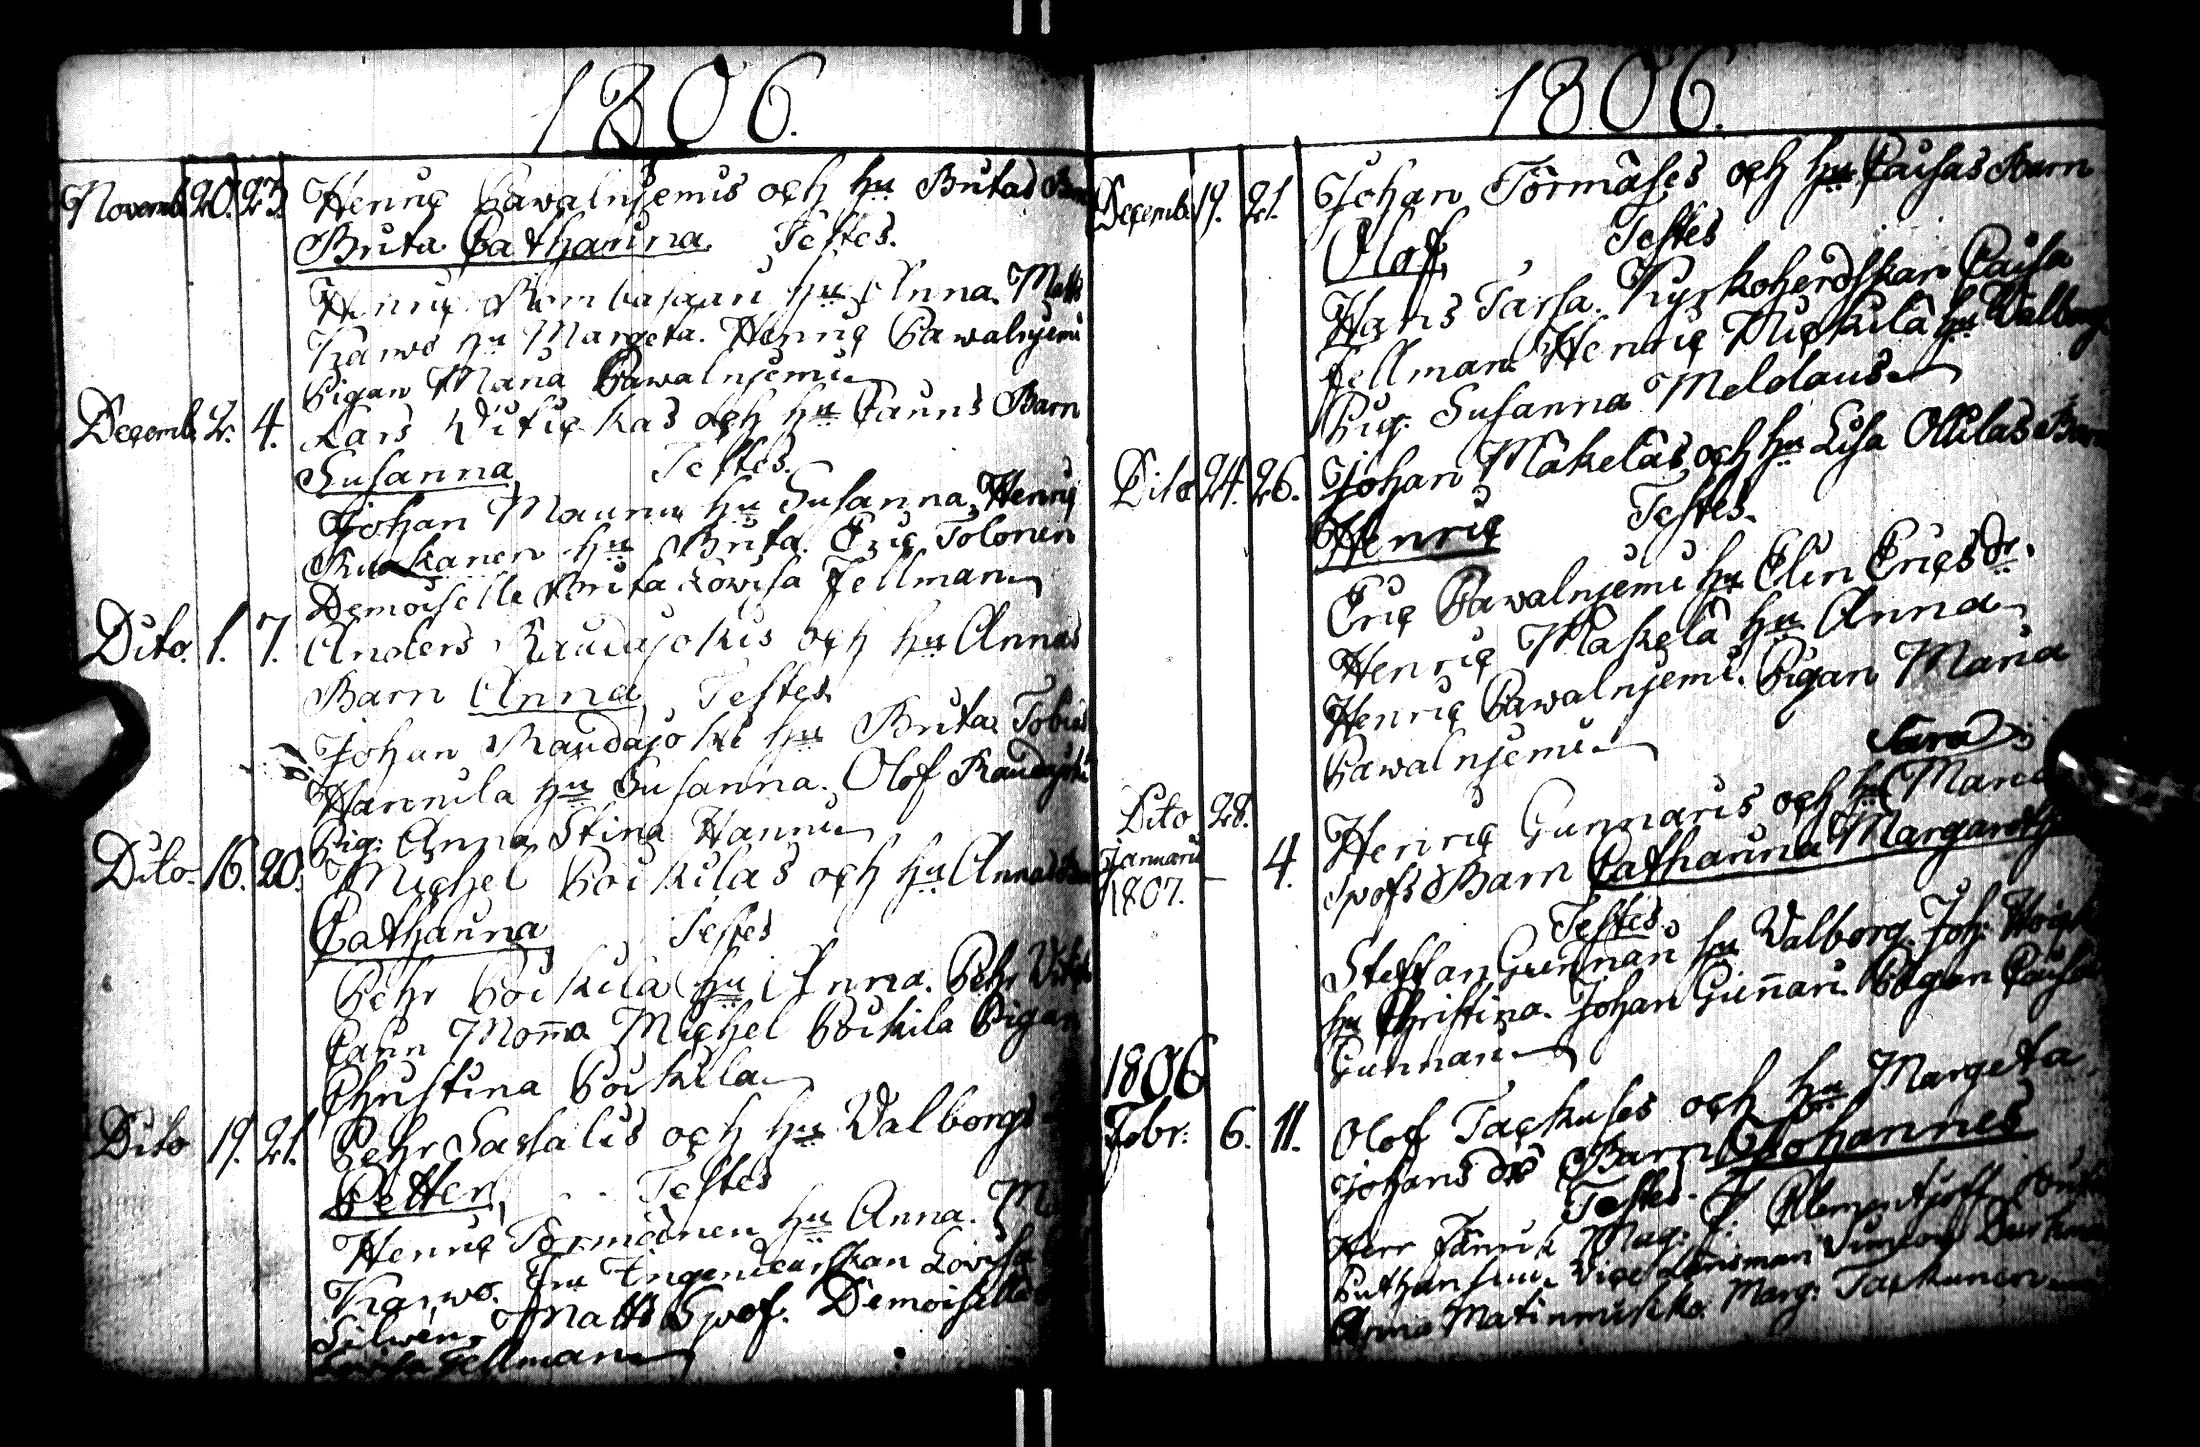 1806.
Novemb. 20. 23. Henric Pawalnjemis och hu Britas Barn
Brita Catharina. Testes.
Henric Rombajaan hu Anna. Matts
Karwo hu Margeta. Henric Pawalnjemi
Pigan Maria Pawalnjemi
Decemb. 2. 4. Lars Witickas och hu Carins Barn
Susanna Testes.
Johan Maunu hu Susanna, Henric
hu Brita. Eric Tolonen
Demoiselle Brita Lovisa Fellman
Dito. 1. 7. Anders Raudajokis och hu Annas
Barn Anna Testes
Johan Raudajoki hu Brita Tobias
Hannila hu Susanna. Olof Raudajoki
Pig: Anna Stina Hannu
Dito. 16. 20. Michel Poikilas och hu Annas Barn
Catharina Testes
Pehr Poikila hu Anna. Pehr
Carin Mom̄a Michel Poikila Pigan
Christina Poikila
Dito 19. 21. Pehr Sassalis och hu Valborgs
Petter Testes
Henric Törmänen hu Anna.
Karwo. Fru Ingenieurskan Lovisa
Silwén. Matts Spof. Demoiselle
Lovisa Fellman
1806.
Decemb. 19. 21. Johan Törmäses och hu Caisas Barn
Olof, Testes
Hans Tarsa. Kyrkoherdskan Caisa
Fellman Henric Nickilä hu Walborg
Pig: Susanna Meldaus
Dito 24. 26. Johan Mäkeläs och hu Lisa Ollilas Barn
Henric Testes.
Eric Pawalnjemi hu Elin Ericsdr.
Henric Mäkelä hu Anna
Henric Pawalnjemi. Pigan Maria
Pawalnjemi
Sara
Dito 28. Henric Gunnaris och hu Maria
Januarii 1807. – 4. Spofs Barn Catharina Margaretha
Testes.
Steffan Gunnari hu Valborg. Joh:
hu Christina. Johan Gun̄ari. Pigan Caisa
Gunnari
1806
Febr: 6. 11. Olof Tackuses och hu Margeta
Johans dr Barn Johannes
Testes.
Herr Fänrik Mag: F: Clementjeff
Vice Länsman
Anna Matinmickko Marg: Tackunen